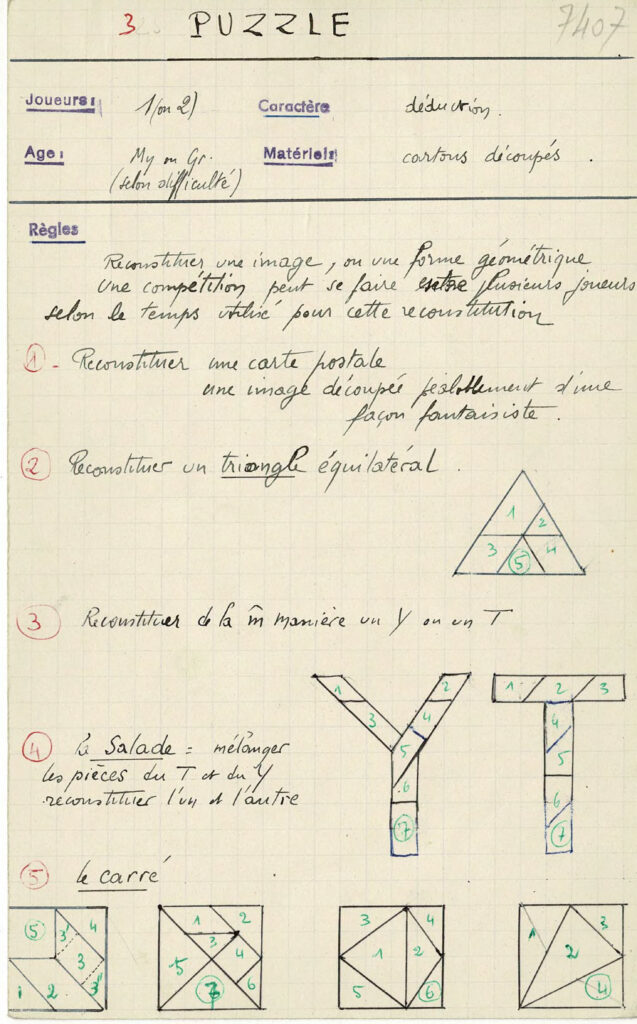 3 PUZZLE 7407
Joueurs: 1 (ou 2) Caractère déduction.
Age: My ou Gr. Matériel: cartons découpés.
(selon difficulté)
Règles
Reconstituer une image, ou une forme géométrique
une compétition peut se faire entre plusieurs joueurs
selon le temps utilisé pour cette reconstitution
1 - Reconstituer une carte postale
une image découpée d'une
façon fantaisiste.
2 Reconstituer un triangle équilatéral.
1 2
3 5 4
3 Reconstituer de la m̂ manière un Y ou un T
1 2 1 2 3
3 4 4
4 la Salade = mélanger 5 5
les pièces du T et du Y 6 6
reconstituer l'un et l'autre 7 7
5 le carré
5 3' 4 1 2 3 4 3 1
3 3 4 1 2 2
1 2 3" 5 7 6 5 6 4